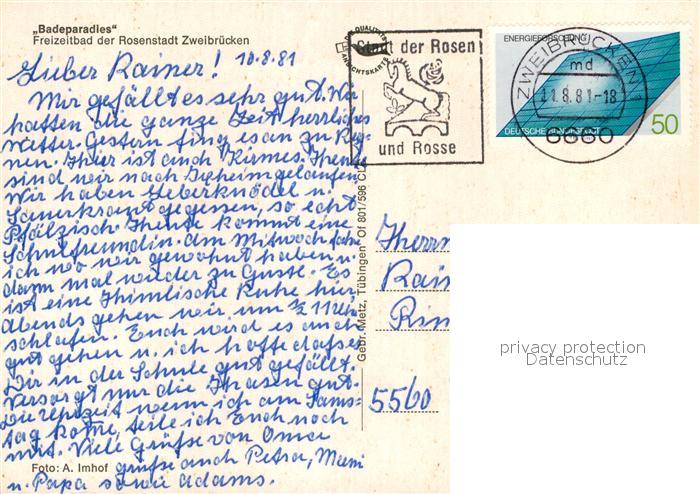 „Badeparadies"
Freizeitbad der Rosenstadt Zweibrücken
10.8.81
Lieber Rainer!
Mir gefällt es sehr gut. Wir
hatten die ganze Zeit herrliches
Wetter. Gestern fing es an zu Reg-
nen. Hier ist auch Kirmes. Heute
sind wir nach Ixheim gelaufen.
Wir haben Leberknödel u.
Sauerkraut gegessen, so echt
Pfälzisch. Heute kommt eine
Schulfreundin. Am Mittwoch fahr
ich wo wir gewohnt haben u.
dann mal wieder zu Guste. Es
ist eine Himmlische Ruhe hier
Abends gehen wir um ½ 11 Uhr
schlafen. Euch wird es auch
gut gehen u. ich hoffe daß es
Dir in der Schule gut gefällt.
Versorgt mir die Hasen gut.
Die Uhrzeit wenn ich am Sams-
tag kome, teile ich Euch noch
mit. Viele Grüße von Oma
grüße auch Petra, Mami
u. Papa sowie Adams.
Foto: A. Imhof
Gebr. Metz, Tübingen · Of 801/596 CL
QUALITÄTS
ANSICHTSKARTE
Stadt der Rosen
und Rosse
ZWEIBRÜCKEN 1
md
11.8.81-18
6660
ENERGIEFORSCHUNG
DEUTSCHE BUNDESPOST
50
Herrn
Rain
Rin
5560
privacy protection
Datenschutz